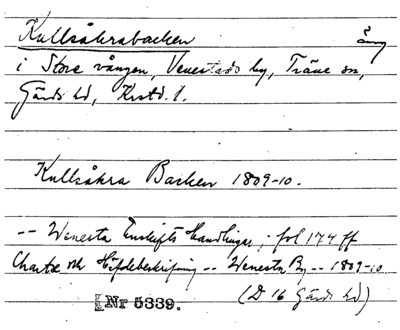 Kullsåkrabacken äng
i Store vången, Venestads by, Träne sn,
Gärds hd, Krstd. l.
Kullsåkra Backen 1809-10.
-- Wenesta Enskifts Handlingar, fol 174 ff
Charta och Häfdebeskrifning -- Wenesta By -- 1809-10
(D 16 Gärds hd)
Nr 5339.